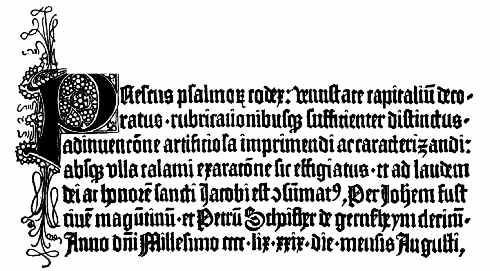 Presens psalmoꝝ codex: venustate capitaliū deco-
ratus. rubricationibusqꝫ sufficienter distinctus.
adinuencōne artificiosa imprimendi ac caracterizandi:
absqꝫ vlla calami exaracōne sic effigiatus. et ad laudem
dei ac honorē sancti Jacobi est ↄsūmatꝰ, Per Johēm fust
ciuē magūtinū. et Petrū Schoifher de gernsheym clericū.
Anno dn̄i Millesimo cccc. lix. xxix. die. mensis Augusti,